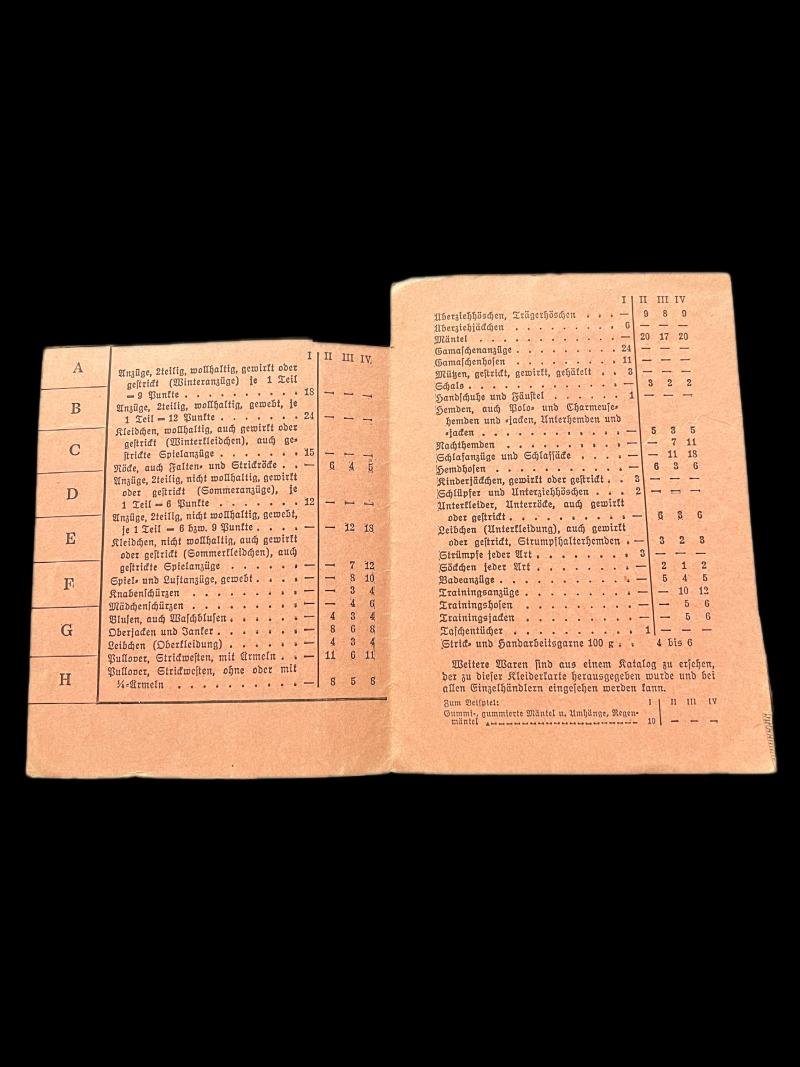 A
B
C
D
E
F
G
H
I II III IV.
Anzüge, 2teilig, wollhaltig, gewirkt oder
gestrickt (Winteranzüge) je 1 Teil
= 9 Punkte . . . . . . . . . . 18 — — —
Anzüge, 2teilig, wollhaltig, gewebt, je
1 Teil = 12 Punkte . . . . . . . 24 — — —
Kleidchen, wollhaltig, auch gewirkt oder
gestrickt (Winterkleidchen), auch ge-
strickte Spielanzüge . . . . . . . 15 — — —
Röcke, auch Falten- und Strickröcke . . — 6 4 5
Anzüge, 2teilig, nicht wollhaltig, gewirkt
oder gestrickt (Sommeranzüge), je
1 Teil = 6 Punkte . . . . . . . 12 — — —
Anzüge, 2teilig, nicht wollhaltig, gewebt,
je 1 Teil = 6 bzw. 9 Punkte . . . . — — 12 18
Kleidchen, nicht wollhaltig, auch gewirkt
oder gestrickt (Sommerkleidchen), auch
gestrickte Spielanzüge . . . . . . — — 7 12
Spiel- und Luftanzüge, gewebt . . . . — — 8 10
Knabenschürzen . . . . . . . . . — — 3 4
Mädchenschürzen . . . . . . . . — — 4 6
Blusen, auch Waschblusen . . . . . . — 4 3 4
Oberjacken und Janker . . . . . . . — 8 6 8
Leibchen (Oberkleidung) . . . . . . — 4 3 4
Pullover, Strickwesten, mit Ärmeln . . — 11 6 11
Pullover, Strickwesten, ohne oder mit
¼-Ärmeln . . . . . . . . . . — 8 5 8
I II III IV
Überziehhöschen, Trägerhöschen . . . — 9 8 9
Überziehjäckchen . . . . . . . . . 6 — — —
Mäntel . . . . . . . . . . . . . — 20 17 20
Gamaschenanzüge . . . . . . . . . 24 — — —
Gamaschenhosen . . . . . . . . . 11 — — —
Mützen, gestrickt, gewirkt, gehäkelt . . 3 — — —
Schals . . . . . . . . . . . . . — 3 2 2
Handschuhe und Fäustel . . . . . . 1 — — —
Hemden, auch Polo- und Charmeuse-
hemden und -jacken, Unterhemden und
-jacken . . . . . . . . . . . . — 5 3 5
Nachthemden . . . . . . . . . . — — 7 11
Schlafanzüge und Schlafsäcke . . . . — — 11 18
Hemdhosen . . . . . . . . . . . — 6 3 6
Kinderjäckchen, gewirkt oder gestrickt . . 3 — — —
Schlüpfer und Unterziehhöschen . . . 2 — — —
Unterkleider, Unterröcke, auch gewirkt
oder gestrickt . . . . . . . . . — 6 3 6
Leibchen (Unterkleidung), auch gewirkt
oder gestrickt, Strumpfhalterhemden . — 3 2 3
Strümpfe jeder Art . . . . . . . . 3 — — —
Söckchen jeder Art . . . . . . . . — 2 1 2
Badeanzüge . . . . . . . . . . . — 5 4 5
Trainingsanzüge . . . . . . . . . — — 10 12
Trainingshosen . . . . . . . . . — — 5 6
Trainingsjacken . . . . . . . . . — — 5 6
Taschentücher . . . . . . . . . . 1 — — —
Strick- und Handarbeitsgarne 100 g . . 4 bis 6
Weitere Waren sind aus einem Katalog zu ersehen,
der zu dieser Kleiderkarte herausgegeben wurde und bei
allen Einzelhändlern eingesehen werden kann.
Zum Beispiel: I II III IV
Gummi-, gummierte Mäntel u. Umhänge, Regen-
mäntel . . . . . . . . . . 10 — — —